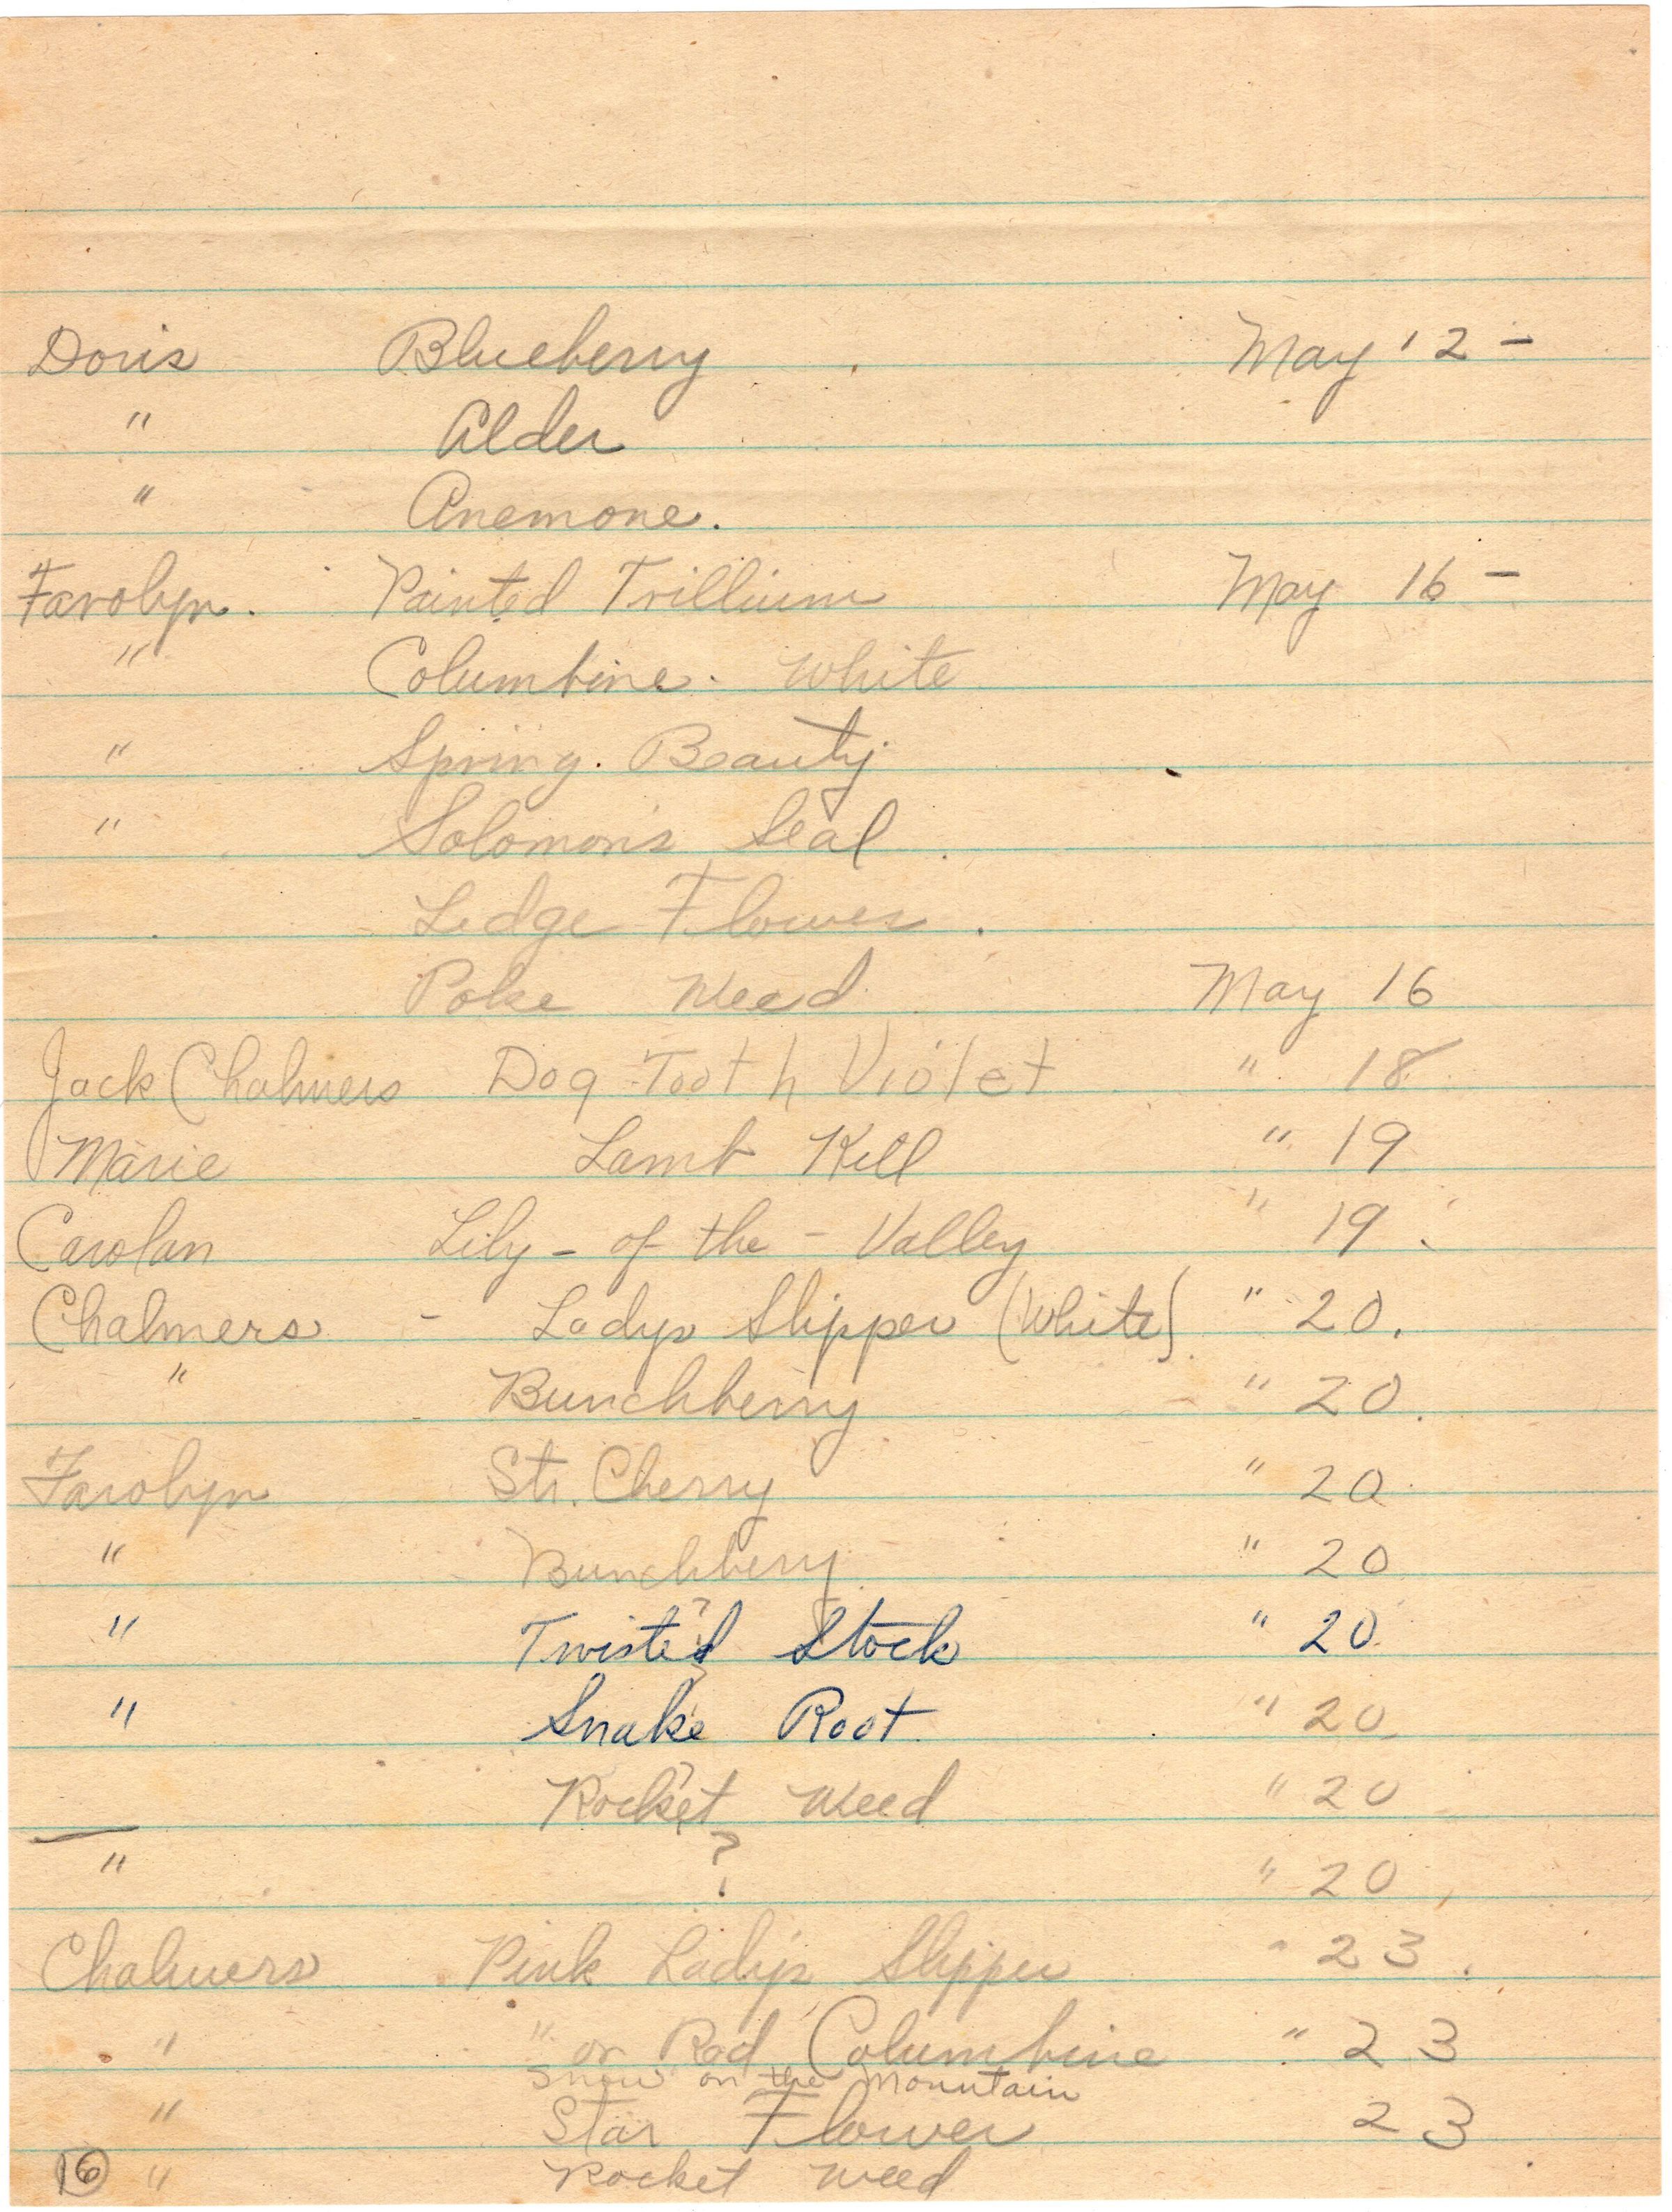 Doris Blueberry May 12 -
" Alder
" Anemone.
Farolyn. Painted Trillium May 16 -
" Columbine. White
" Spring. Beauty
" Solomon's Seal
Ledge Flower.
Poke Weed May 16
Jack Chalmers Dog Tooth Violet " 18
Marie Lamb Kill " 19
Carolan Lily - of the - Valley " 19.
Chalmers - Ladys Slipper (White) " 20.
" Bunchberry " 20.
Farolyn Str. Cherry " 20
" Bunchberry " 20
" Twisted ? Stock " 20
" Snake Root " 20
Rocket ? Weed " 20
" ? " 20
Chalmers Pink Lady's Slipper " 23.
" " or Red Columbine " 23
Snow on the Mountain
" Star Flower 23
16 " Rocket Weed